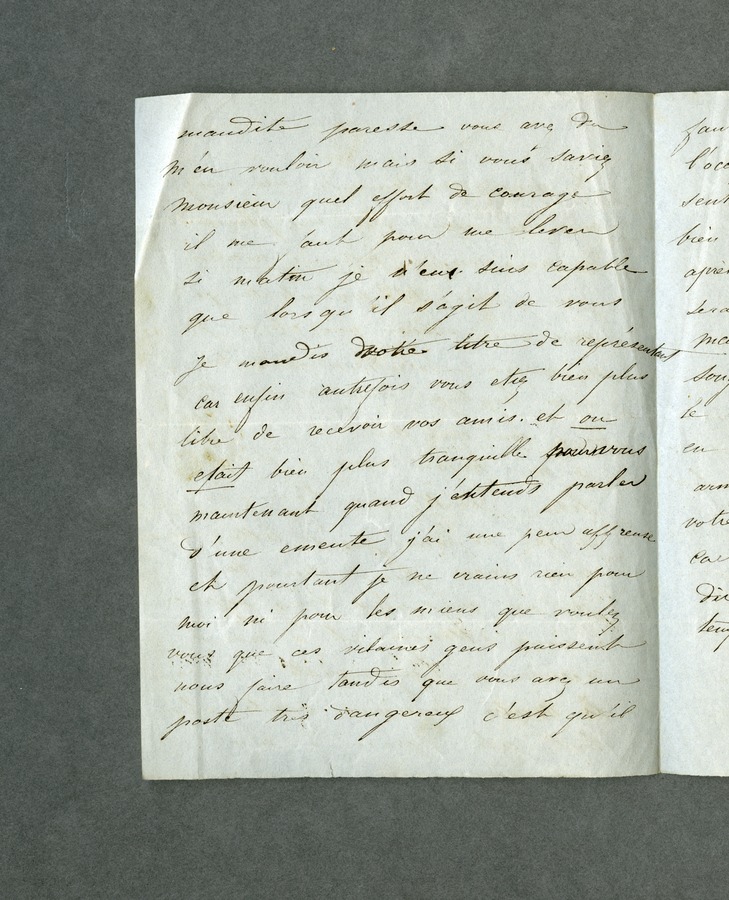 maudite paresse vous avez du
m'en vouloir mais si vous saviez
monsieur quel effort de courage
il me faut pour me lever
si matin je n'en suis capable
que lorsqu'il s'agit de vous
je maudis votre titre de représentant
car enfin autrefois vous etiez bien plus
libre de recevoir vos amis. et on
etait bien plus tranquille pour vous
maintenant quand j'entends parler
d'une emeute j'ai une peur affreuse
et pourtant je ne crains rien pour
moi ni pour les miens que voulez
vous que ces vilaines gens puissent
nous faire tandis que vous avez un
poste très dangereux c'est qu'il
l'occ
sent
bien
après
sera
le
en
arm
votre
car